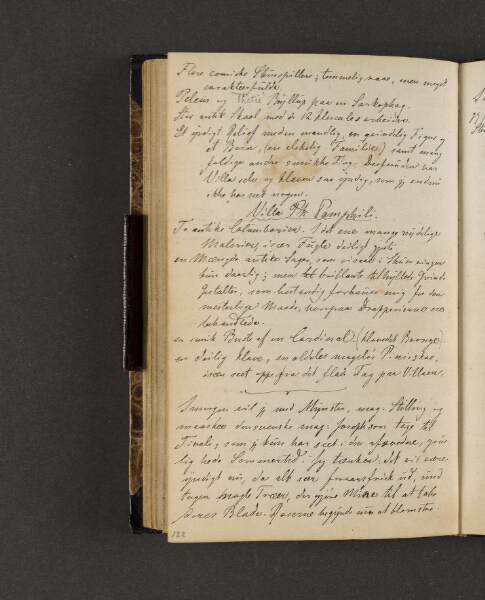 Flere comiske Skuespillere; temmelig raae, men meget
karakterfulde.
Peleus og Thetis' Bryllup paa en Sarkophag.
Stor antik Skaal med de 12 Hercules arbeider.
Et yndigt Relief med en mandlig, en qvindelig Figur og
et Barn, (en elskelig Familie) samt mang-
foldige andre smukke Ting. Desforuden var
Villa selv og Haven saa yndig, som jeg endnu
ikke har seet nogen.
Villa Ph. Pamphili.
To antike Columbarier. I det ene mange nydelige
Malerier, især Fugle deiligt gjort.
en Mængde antike Sager, som oftest i Skikningen
kun daarlig; men brillante tilhyllede Qvinde
Gestalter, som bestandig forbauser mig for den
mesterlige Maade, hvorpaa Drapperierne ere
behandlede.
en smuk Buste af en Cardinal (blandet Barroge).
en deilig Have, en aldeles mageløs Pinieskov,
især seet oppe fra det flade Tag paa Villaen.
Imorgen vil jeg med Mynster, mag. Stilling og
maaskee den svenske mag. Josephson tage til
Tivoli, som jeg kun har seet i den afsvedne, grue-
lig hede Sommertid. Jeg tænker, det vil være
yndigt nu, da alt seer foraarsfrisk ud, und-
tagen nogle Træer, der gjøre Mine til at tabe
deres Blade. Roserne begynde nu at blomstre.
122